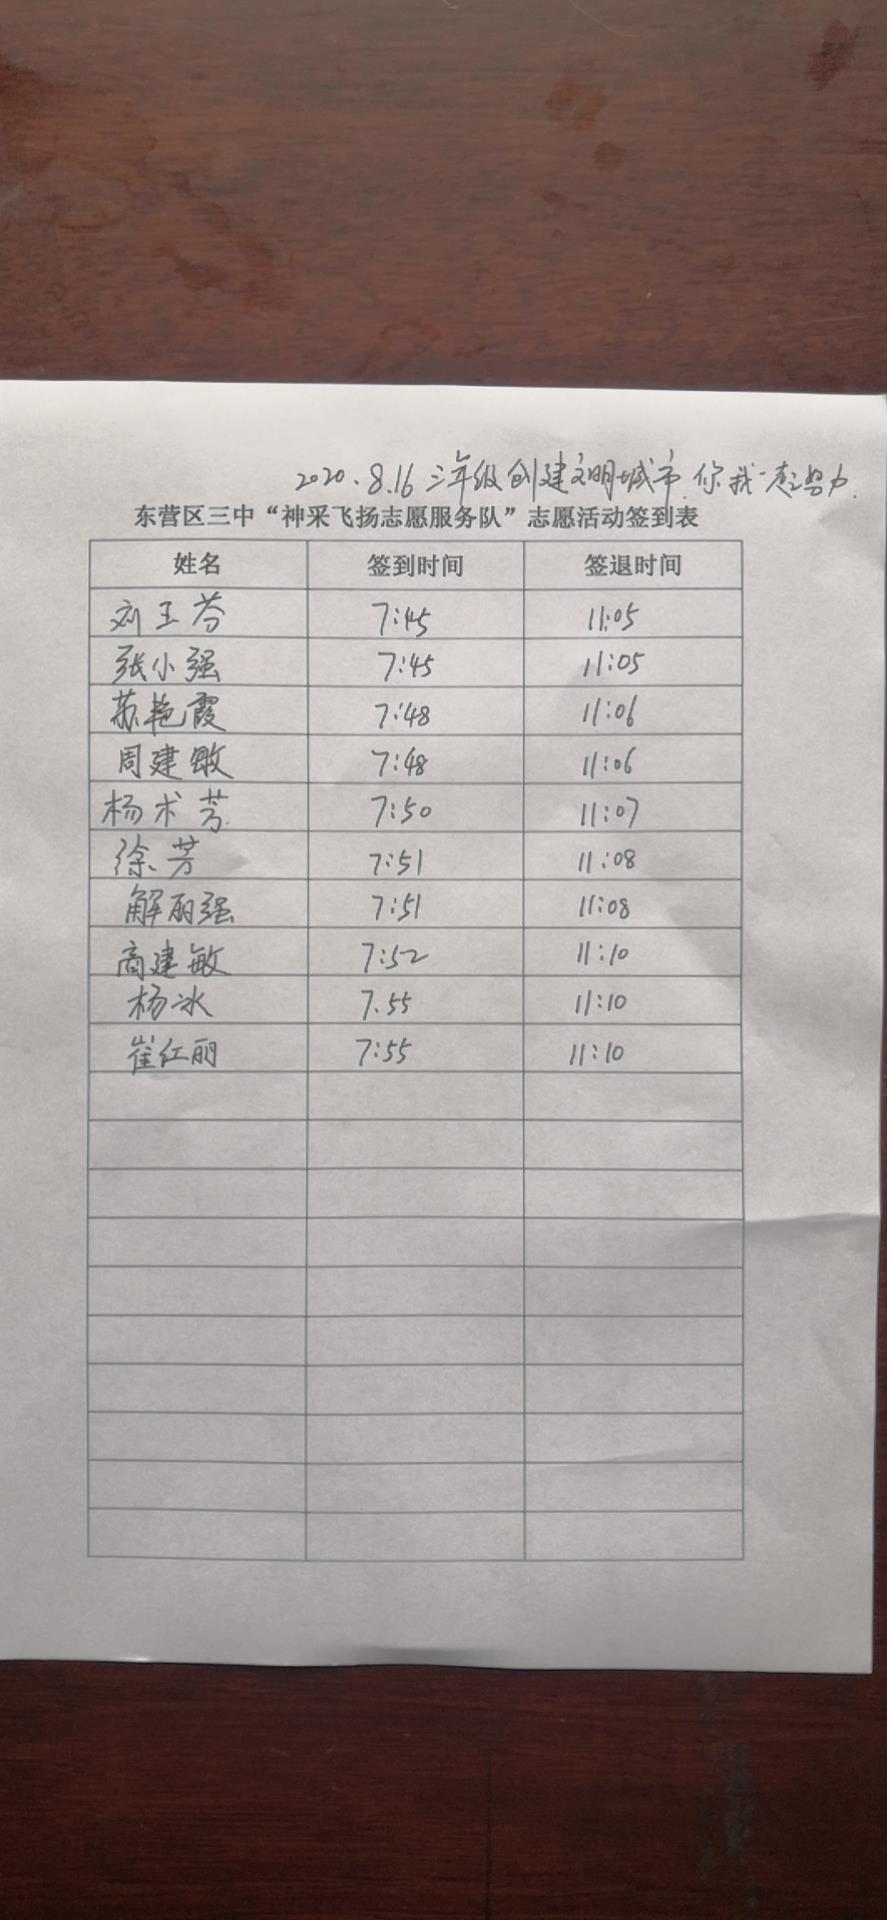 2020.8.16 三年级创建文明城市.你我一起努力.
东营区三中“神采飞扬志愿服务队”志愿活动签到表
姓名 签到时间 签退时间
刘玉芬 7:45 11:05
张小强 7:45 11:05
苏艳霞 7:48 11:06
周建敏 7:48 11:06
杨术芳 7:50 11:07
徐芳 7:51 11:08
解丽强 7:51 11:08
商建敏 7:52 11:10
杨冰 7.55 11:10
崔红丽 7:55 11:10